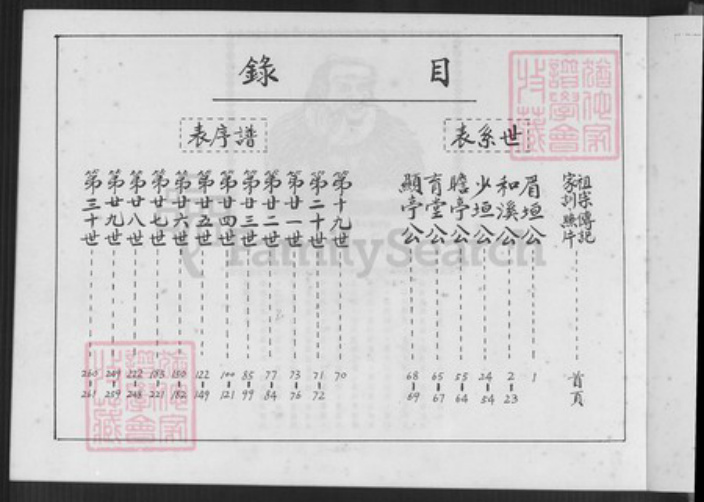 目錄
世系表
祖宗傳記
家訓照片 首頁
眉垣公 1
和溪公 2-23
少垣公 24-54
瞻亭公 55-64
育堂公 65-67
顯亭公 68-69
譜序表
第十九世 70
第二十世 71-72
第廿一世 73-76
第廿二世 77-84
第廿三世 85-99
第廿四世 100-121
第廿五世 122-149
第廿六世 150-182
第廿七世 183-221
第廿八世 222-248
第廿九世 249-259
第三十世 260-261
FamilySearch